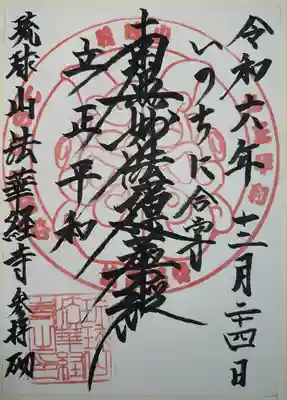 令和六年十二月二十四日
いのちに合掌
南無妙法蓮華経
立正平和
琉球山法華経寺参拝砌